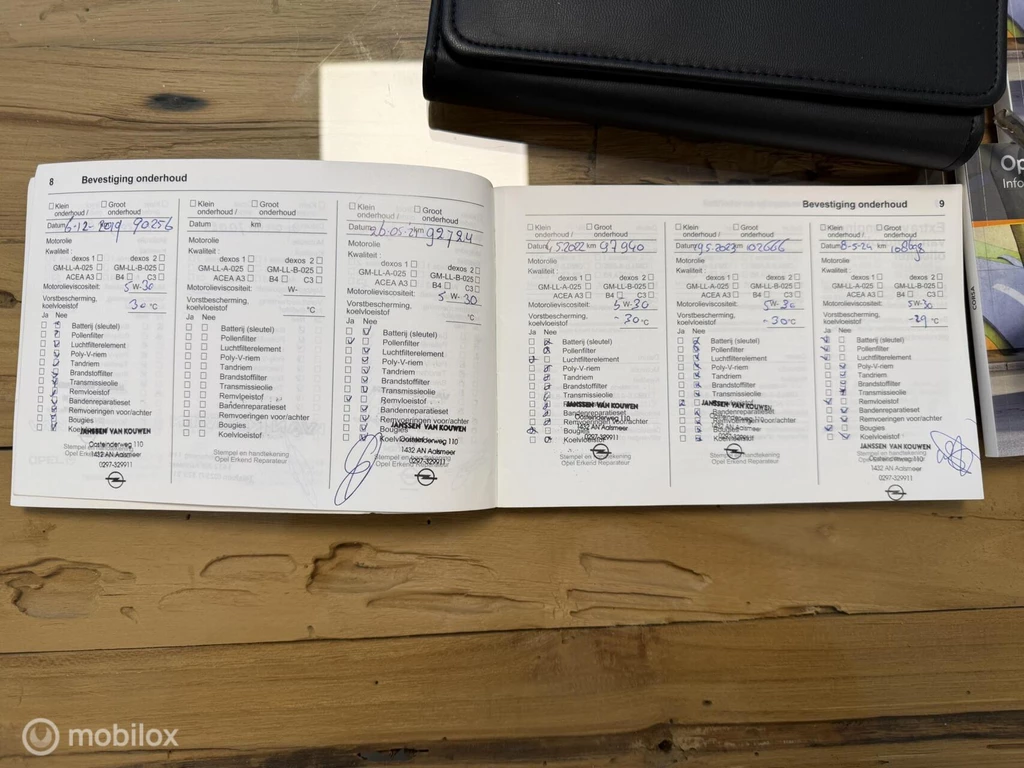 8 Bevestiging onderhoud
Klein onderhoud / Groot onderhoud
Datum 6-12-2019 90256
Motorolie
Kwaliteit:
dexos 1 dexos 2
GM-LL-A-025 GM-LL-B-025
ACEA A3 B4 C3
Motorolieviscositeit: 5W-30
Vorstbescherming,
koelvloeistof 30 °C
Ja Nee
Batterij (sleutel)
Pollenfilter
Luchtfilterelement
Poly-V-riem
Tandriem
Brandstoffilter
Transmissieolie
Remvloeistof
Bandenreparatieset
Remvoeringen voor/achter
Bougies
Koelvloeistof
JANSSEN VAN KOUWEN
Oosteinderweg 110
Stempel en handtekening
1432 AN Aalsmeer
0297-329911
Klein onderhoud / Groot onderhoud
Datum km
Motorolie
Kwaliteit:
dexos 1 dexos 2
GM-LL-A-025 GM-LL-B-025
ACEA A3 B4 C3
Motorolieviscositeit: W-
Vorstbescherming,
koelvloeistof °C
Ja Nee
Batterij (sleutel)
Pollenfilter
Luchtfilterelement
Poly-V-riem
Tandriem
Brandstoffilter
Transmissieolie
Remvloeistof
Bandenreparatieset
Remvoeringen voor/achter
Bougies
Koelvloeistof
Stempel en handtekening
Opel Erkend Reparateur
Klein onderhoud / Groot onderhoud
Datum 26-05-21 92724
Motorolie
Kwaliteit:
dexos 1 dexos 2
GM-LL-A-025 GM-LL-B-025
ACEA A3 B4 C3
Motorolieviscositeit: 5 W-30
Vorstbescherming,
koelvloeistof °C
Ja Nee
Batterij (sleutel)
Pollenfilter
Luchtfilterelement
Poly-V-riem
Tandriem
Brandstoffilter
Transmissieolie
Remvloeistof
Bandenreparatieset
Remvoeringen voor/achter
Bougies
Koelvloeistof
JANSSEN VAN KOUWEN
Oosteinderweg 110
Stempel en handtekening
1432 AN Aalsmeer
0297-329911
Bevestiging onderhoud 9
Klein onderhoud / Groot onderhoud
Datum 4.5.2022 km 97940
Motorolie
Kwaliteit:
dexos 1 dexos 2
GM-LL-A-025 GM-LL-B-025
ACEA A3 B4 C3
Motorolieviscositeit: 5W-30
Vorstbescherming,
koelvloeistof -30 °C
Ja Nee
Batterij (sleutel)
Pollenfilter
Luchtfilterelement
Poly-V-riem
Tandriem
Brandstoffilter
Transmissieolie
Remvloeistof
JANSSEN VAN KOUWEN
Bandenreparatieset
Remvoeringen voor/achter
Oosteinderweg 110
1432 AN Aalsmeer
Bougies
0297-329911
Koelvloeistof
Stempel en handtekening
Opel Erkend Reparateur
Klein onderhoud / Groot onderhoud
Datum km 102666
Motorolie
Kwaliteit:
dexos 1 dexos 2
GM-LL-A-025 GM-LL-B-025
ACEA A3 B4 C3
Motorolieviscositeit: 5W-30
Vorstbescherming,
koelvloeistof -30 °C
Ja Nee
Batterij (sleutel)
Pollenfilter
Luchtfilterelement
Poly-V-riem
Tandriem
Brandstoffilter
Transmissieolie
JANSSEN VAN KOUWEN
Bandenreparatieset
Remvoeringen voor/achter
Bougies
Koelvloeistof
Stempel en handtekening
Opel Erkend Reparateur
Klein onderhoud / Groot onderhoud
Datum 8-5-24 km
Motorolie
Kwaliteit:
dexos 1 dexos 2
GM-LL-A-025 GM-LL-B-025
ACEA A3 B4 C3
Motorolieviscositeit: 5W-30
Vorstbescherming,
koelvloeistof -29 °C
Ja Nee
Batterij (sleutel)
Pollenfilter
Luchtfilterelement
Poly-V-riem
Tandriem
Brandstoffilter
Transmissieolie
Remvloeistof
Bandenreparatieset
Remvoeringen voor/achter
Bougies
Koelvloeistof
JANSSEN VAN KOUWEN
Stempel en handtekening
Oosteinderweg 110
1432 AN Aalsmeer
0297-329911
Op
Info
CORSA
mobilox